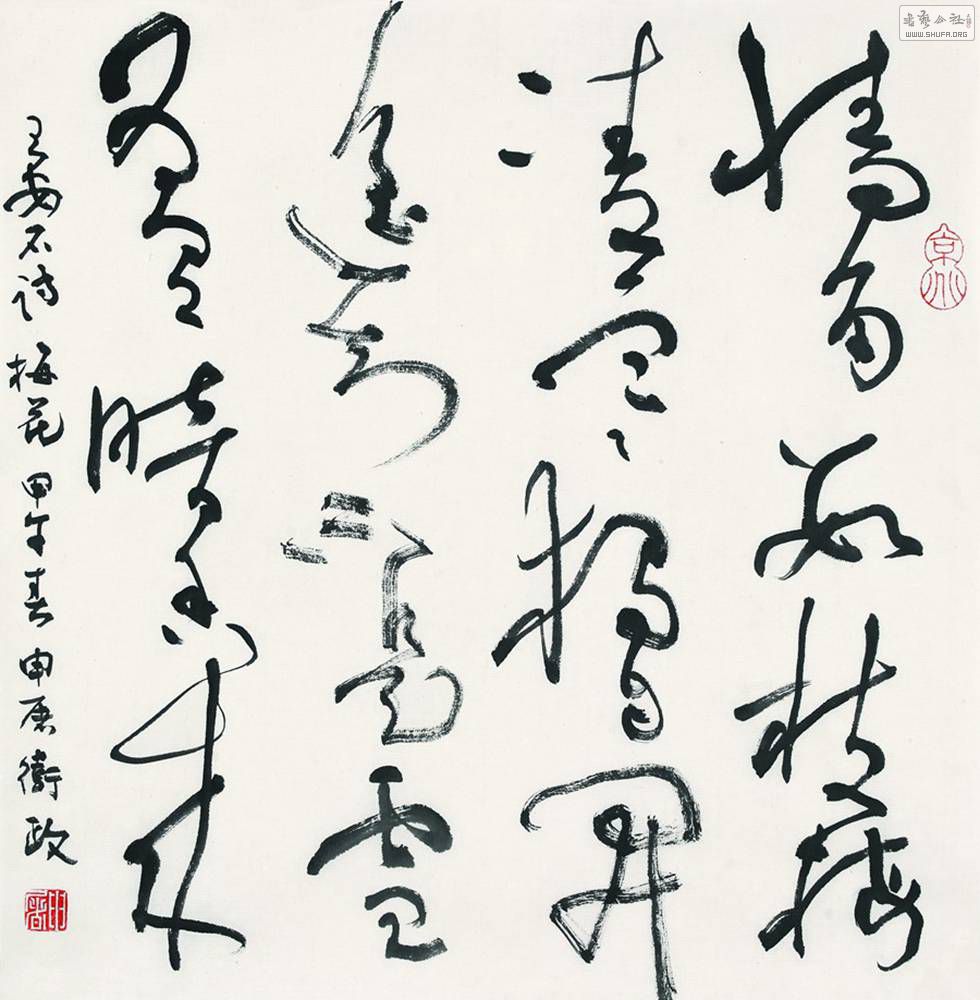 牆角數枝梅
凌寒獨自開
遙知不是雪
為有暗香來
王安石诗 梅花 甲午春 申 衛政
書藝公社
WWW.SHUFA.ORG